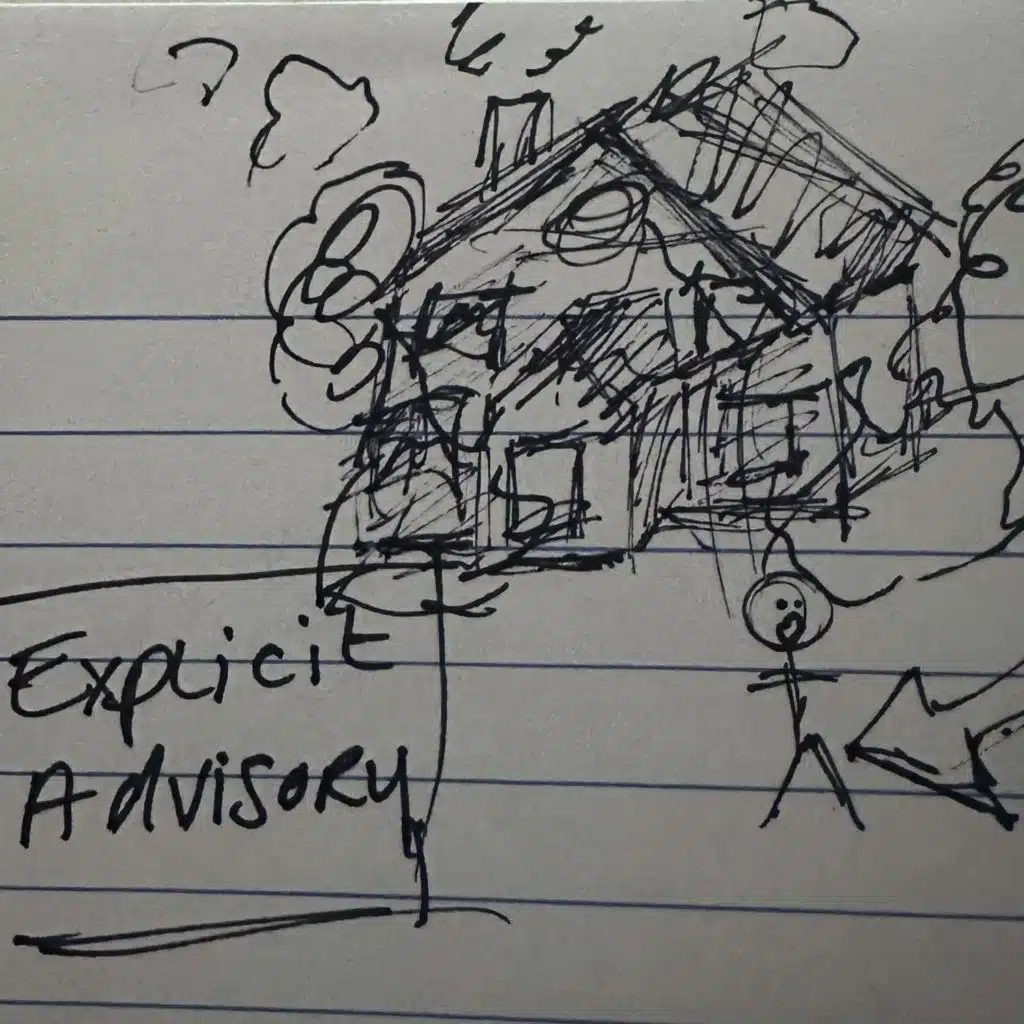 Explicit
Advisory